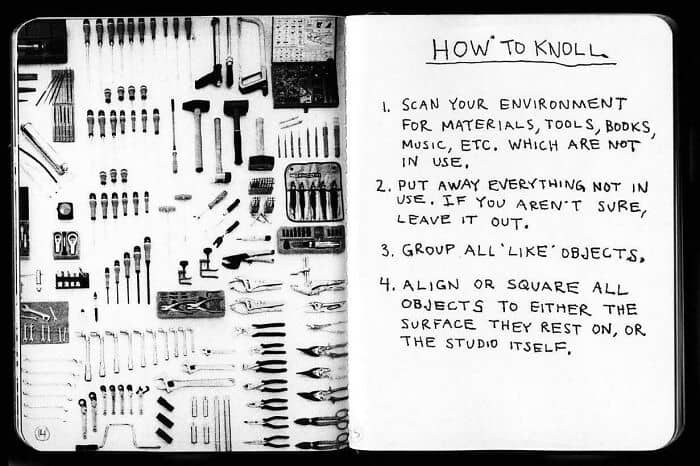 HOW TO KNOLL
1. SCAN YOUR ENVIRONMENT
FOR MATERIALS, TOOLS, BOOKS,
MUSIC, ETC. WHICH ARE NOT
IN USE.
2. PUT AWAY EVERYTHING NOT IN
USE. IF YOU AREN'T SURE,
LEAVE IT OUT.
3. GROUP ALL 'LIKE' OBJECTS.
4. ALIGN OR SQUARE ALL
OBJECTS TO EITHER THE
SURFACE THEY REST ON, OR
THE STUDIO ITSELF.
14